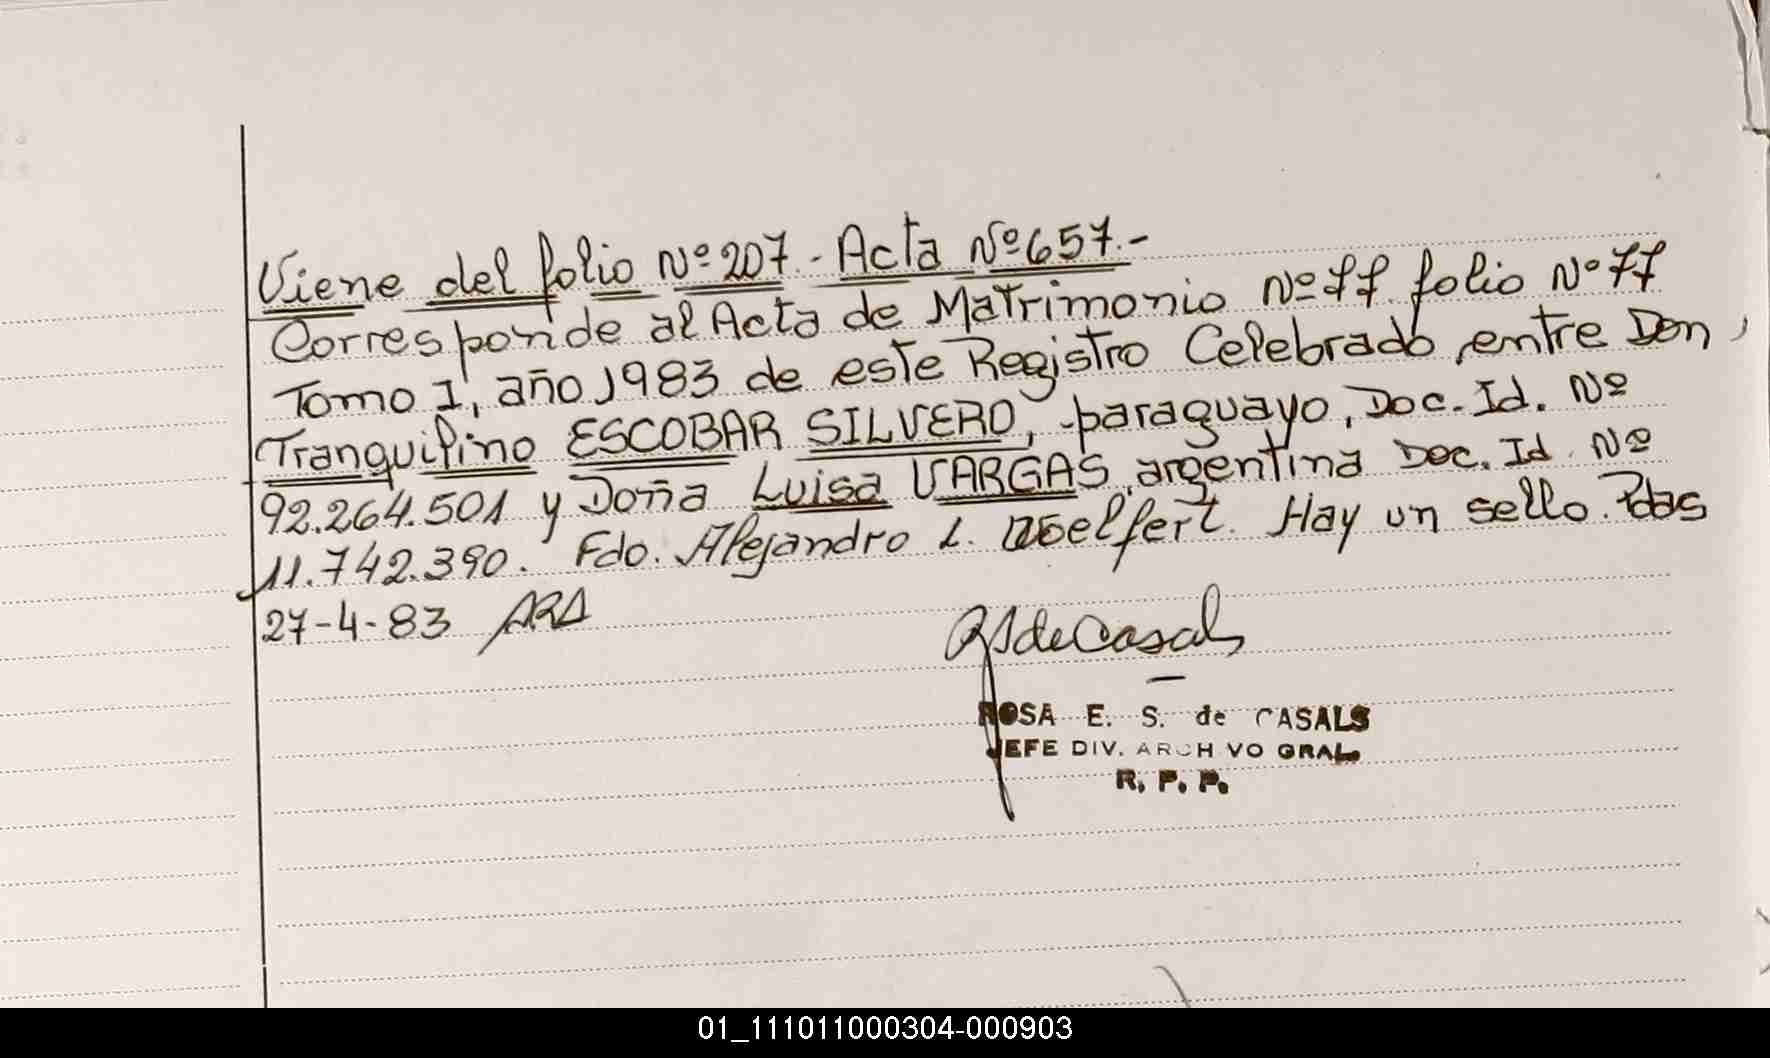 Viene del folio Nº 207.- Acta Nº 657.-
Corresponde al Acta de Matrimonio Nº 77 folio Nº 77
Tomo I, año 1983 de este Registro Celebrado entre Don
Tranquilino ESCOBAR SILVERO, paraguayo, Doc. Id. Nº
92.264.501 y Doña Luisa VARGAS, argentina Doc. Id. Nº
11.742.390. Fdo. Alejandro L. Woelfert. Hay un sello. Pdas
27-4-83
RSdeCasals
ROSA E. S. de CASALS
JEFE DIV. ARCH VO GRAL.
R. P. P.
01_111011000304-000903